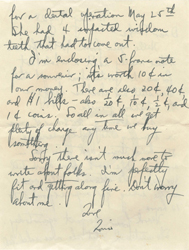 for a dental operation May 25th
She had 4 impacted wisdom
teeth that had to come out.
I'm enclosing a 5-franc note
for a souvenir; it's worth 10¢ in
our money. There are also 20¢, 40¢,
and $1 bills - also 20¢, 10¢, ½¢, and
1¢ coins. So all in all we get
plenty of change any time we buy
something.
Sorry there isn't much more to
write about folks. I'm perfectly
fit and getting along fine. Don't worry
about me.
Love